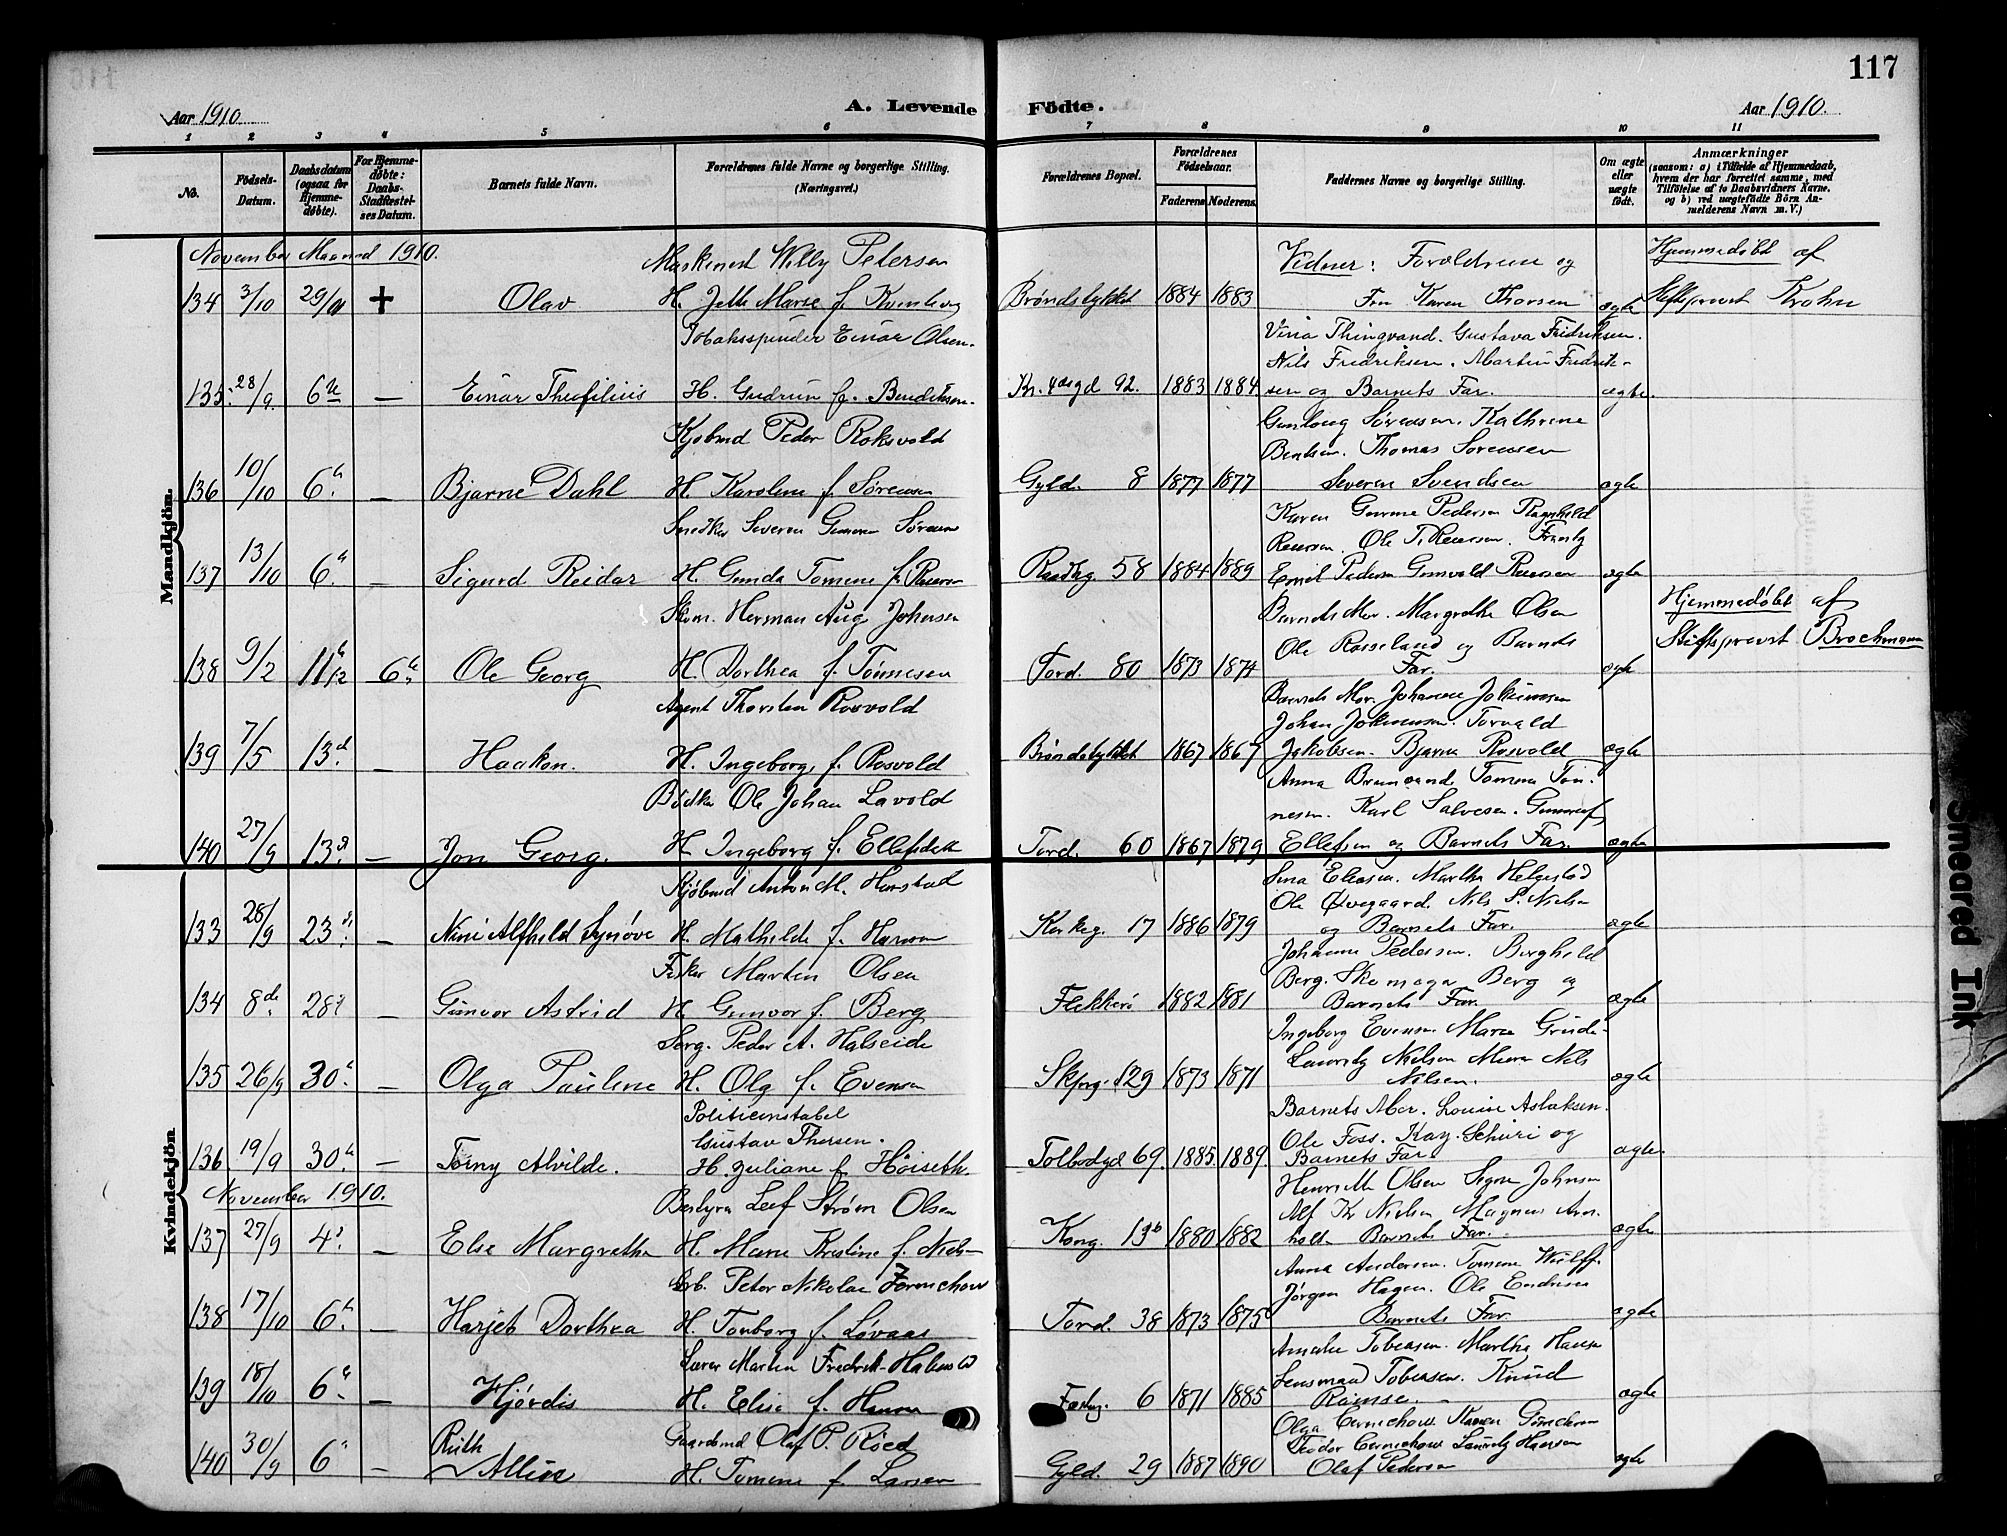 117
Aar 1910.
A. Levende Födte.
Aar 1910.
1 2 3 4 5 6 7 8 9 10 11
No.
Födsels-Datum.
Daabsdatum (ogsaa for Hjemme-døbte).
For Hjemme-döbte: Daabs-Stadfæstel-ses Datum.
Barnets fulde Navn.
Forældrenes fulde Navne og borgerlige Stilling. (Næringsvei.)
Forældrenes Bopæl.
Forældrenes Födselsaar.
Faderens. Moderens.
Faddernes Navne og borgerlige Stilling.
Om ægte eller uægte födt.
Anmærkninger
(saasom: a) i Tilfælde af Hjemmedaab, hvem der har forrettet samme, med Tilföielse af to Daabsvidners Navne. og b) ved uægtefödte Börn An-melderens Navn m. V.)
Mandkjön.
November Maaned 1910.
134 3/10 29/9 + Olav
Maskinist Willy Petersen
H. Jette Marie f. Kvinlaug
Brøndstykket 1884 1883
Vidner: Forældrene og
Fru Karen Thorsen ægte
Hjemmedøbt af
Stiftsprovst Krohn
135. 28/9. 6te — Einar Theofilius
Tobaksspinder Einar Olsen.
H. Gudrun f. Bendiksen.
Kr. 4des gd 92. 1883 1884.
Viria Thingvand. Gustava Fridriksen.
Nils Fredriksen. Martin Fredrik-
sen og Barnets Far. ægte.
136 10/10 6te — Bjarne Dahl
Kjøbmd Peder Roksvold
H. Karoline f. Sørensen
Gyld. 8 1877 1877
Gunloug Sørensen. Kathrine
Bentsen. Thomas Sørensen
Severin Svendsen ægte
137 13/10 6te — Sigurd Reidar
Snedker Severin Gunnar Sørensen
H. Gunda Tomine f.
Raadhg. 58 1884 1889
Karen Gurine Pedersen Ragnhild
Ole T.
Emil Pedersen Gunvald ægte
138 9/2 11/12 6te Ole Georg
Skom. Herman Aug. Johnsen
H. Dorthea f. Tønnesen
Tord. 80 1873 1874
Barnets Mor. Margrethe Olsen
Ole Rosseland og Barnets
Far. ægte
Hjemmedøbt af
Stiftsprovst Brochmann
139 7/5 13d. — Haakon.
Agent Thorsten Rosvold
H. Ingeborg f. Rosvold
Brøndstykket 1867 1867
Barnets Mor Johanne Jokumsen
Johan Jokumsen. Torvald
Jakobsen. Bjarne Rosvold ægte
140 27/9 13d. — Jon Georg.
Bødker Ole Johan Lavold
H. Ingeborg f. Ellefsdatt
Tord. 60 1867 1879
Anna Tomine Tøn-
nesen. Karl Salvesen.
Ellefsen og Barnets Far. ægte
Kvindekjön
133 28/9 23d. — Nini Alfhild Synøve
Kjøbmd Anton M. Harstad
H. Mathilde f. Hansen
17 1886 1879
Sina Eliasen. Martha Helgestad
Ole Øvegaard. Nils P. Nielsen
og Barnets Far. ægte
134 8de. 28d. — Gunvor Astrid
Fisker Martin Olsen
H. Gunvor f. Berg
Flekkerø 1882 1881
Johanne Pedersen. Borghild
Berg. Skomager Berg og
Barnets Far. ægte
135 26/9 30te. — Olga Pauline
Serg. Peder A. Halseide
H. Olg f. Evensen
129 1873 1871
Ingeborg Evensen Marie Grude.
Lauritz Nielsen Nils
Nilsen. ægte
136 19/9 30te — Torny Alvilde.
Politikonstabel
Gustav Thorsen.
H. Juliane f. Høiseth
Tolbodgd 69. 1885. 1889.
Barnets Mor. Louise Aslaksen.
Ole Foss. Kay. Schiri og
Barnets Far. ægte.
November 1910.
137 27/9 4d. — Else Margrethe
Bestyrer Leif Strøm Olsen
H. Marie Kristine f. Niels-
Kong. 13b 1880 1882
Henriette Olsen Signe Johnsen
Alf Kr Nielsen Magnus Arn-
holdt Barnets Far. ægte
138 17/10 6te. — Harjet Dorthea
Arb. Peter Nikolai
H. Tonborg f. Løvaas
Tord. 38 1873 1875
Anna Andersen. Tomine Wulff.
Jørgen Hagen. Ole Endresen
Barnets Far. ægte
139 18/10 6te — Hjørdis
Lærer Martin Fredrik
H. Elise f. Hansen
Fæstng. 6 1871 1885
Amalie Tobiasen. Martha Hansen
Lensmand Tobiasen. Knud
Ramse. — ægte
140 30/9 6te — Ruth Alliva
Gaardsmd Olaf P. Røed
H. Tomine f. Larsen
Gyld. 29 1887 1890
Olga Cernichow Karen
Teodor Cernichow Lauritz Hansen
Olaf Pedersen ægte
Smeared Ink